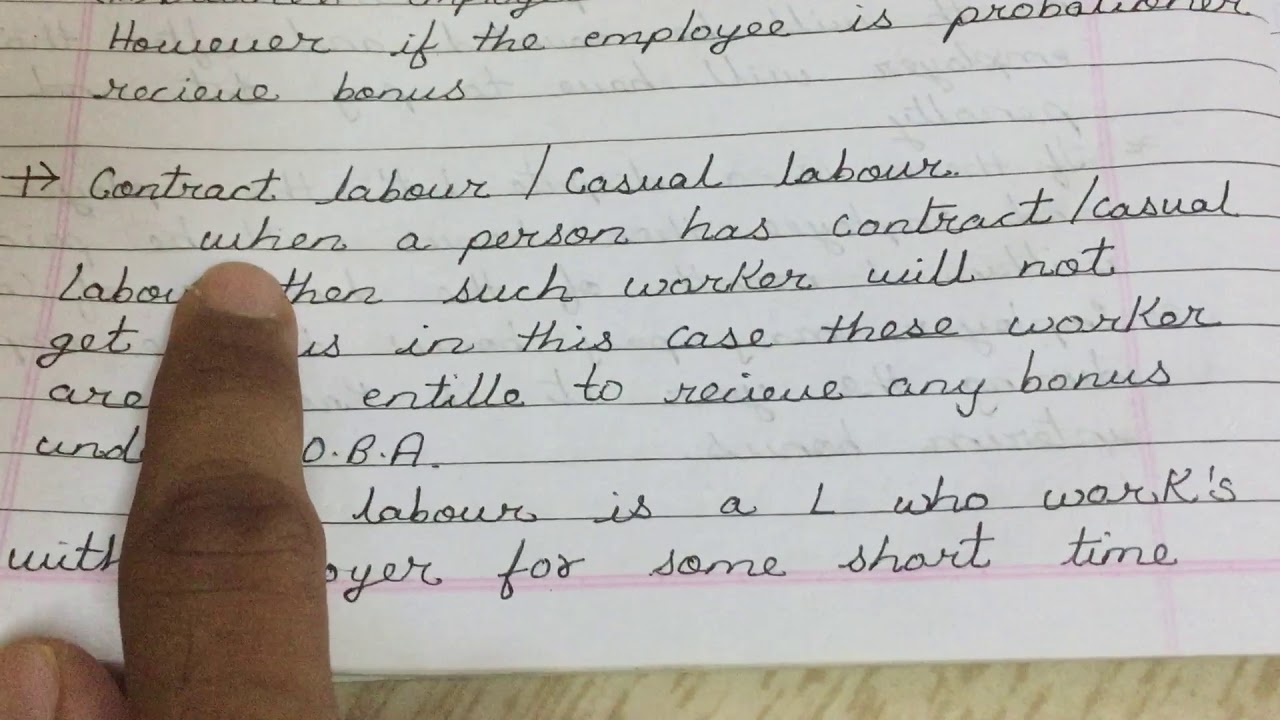 However if the employee is probationer
recieve bonus
→ Contract labour / Casual labour.
when a person has contract/casual
Labou then such worker will not
get is in this case these worker
are entille to recieve any bonus
und O.B.A.
labour is a L who work's
with oyer for some short time